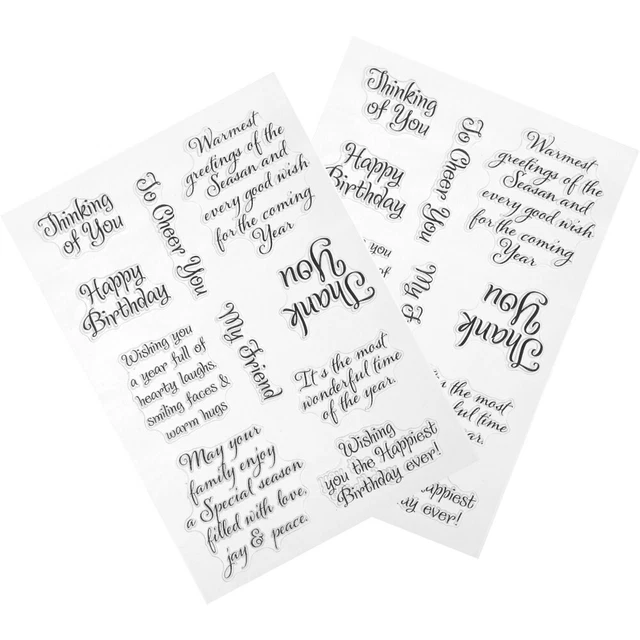 Thinking
of You
To Cheer You
Warmest
greetings of the
Seasan and
every good wish
for the coming
Year
Happy
Birthday
Thank
You
My Friend
Wishing you
a year full of
hearty laughs,
smiling faces &
warm hugs
It's the most
wonderful time
of the year.
May your
family enjoy
a Special season
filled with love,
jay & peace.
Wishing
you the Happiest
Birthday ever!
Thinking
of You
To Cheer You
Warmest
greetings of the
Seasan and
every good wish
for the coming
Year
Happy
Birthday
you
of
My
Thank
You
the most
time
year.
ever!